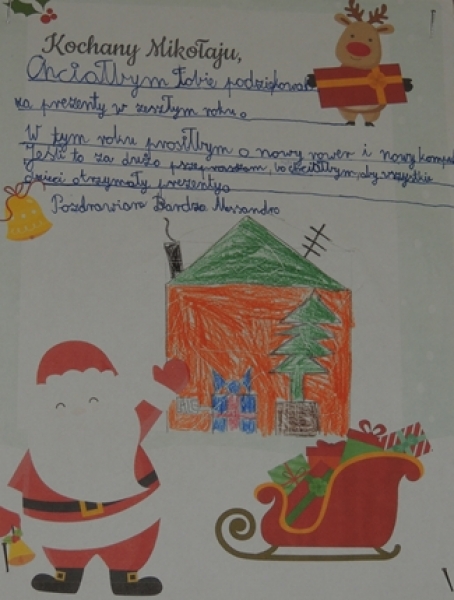 Kochany Mikołaju,
Chciałbym Tobie podziękować
za prezenty w zeszłym roku.
W tym roku prosiłbym o nowy rower i nowy
Jeśli to za dużo przepraszam, bo chciałbym, aby wszystkie
dzieci otrzymały prezenty.
Pozdrawiam Bardzo Alessandro